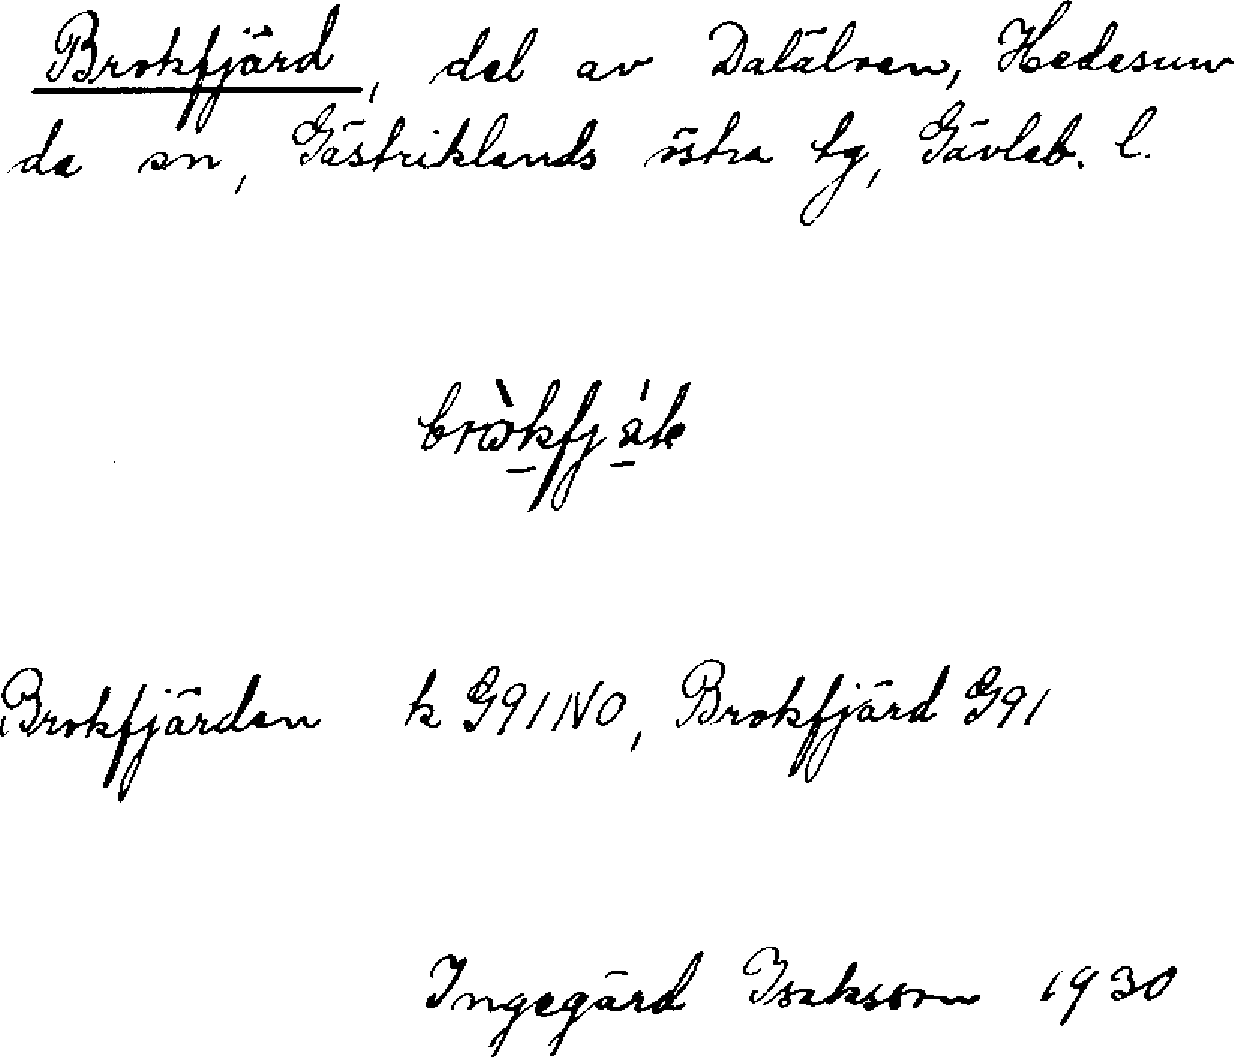 Brokfjärd, del av Dalälven, Hedesun
da sn, Gästriklands östra tg, Gävleb. l.
Brokfjärden k G91NO, Brokfjärd G91
Ingegärd Isaksson 1930